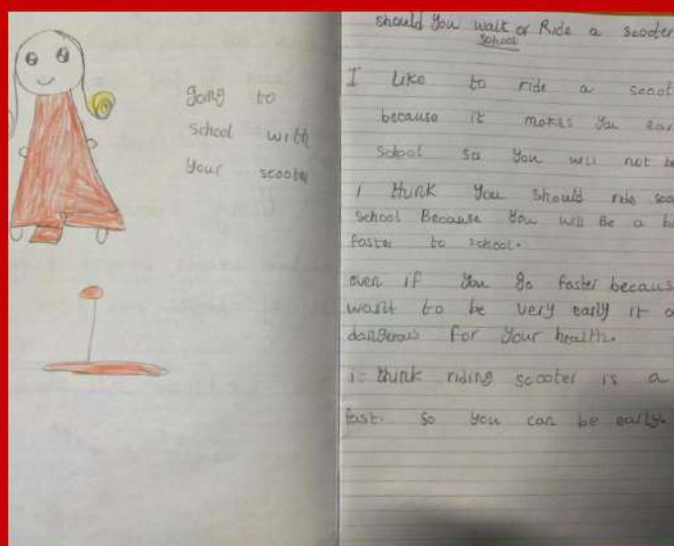 going to
school with
your scooter
should you walk or Ride a scooter
school
I Like to ride a scoot
because it makes you ear
school so you will not be
i think you should ride sco
school Because you will Be a bi
faster to school.
even if you go faster becaus
want to be very early it
dangerous for your health.
i think riding scooter is a
fast. so you can be early.